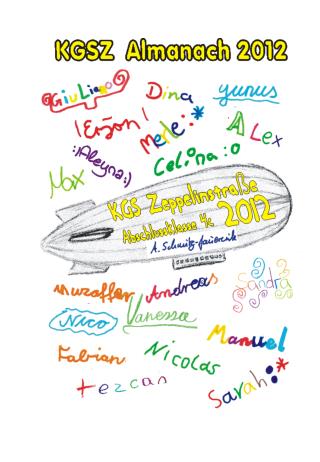 KGSZ Almanach 2012
GiuLiano
Dina
yunus
!Erjon!
Merle:*
ALex
:)Aleyna:)
Max
Celina:o
KGS Zeppelinstraße
Abschlussklasse 4c 2012
muzaffer
Andreas
Sandra
Nico
Vanessa
Manuel
Fabian
Nicolas
tezcan
Sarah:*